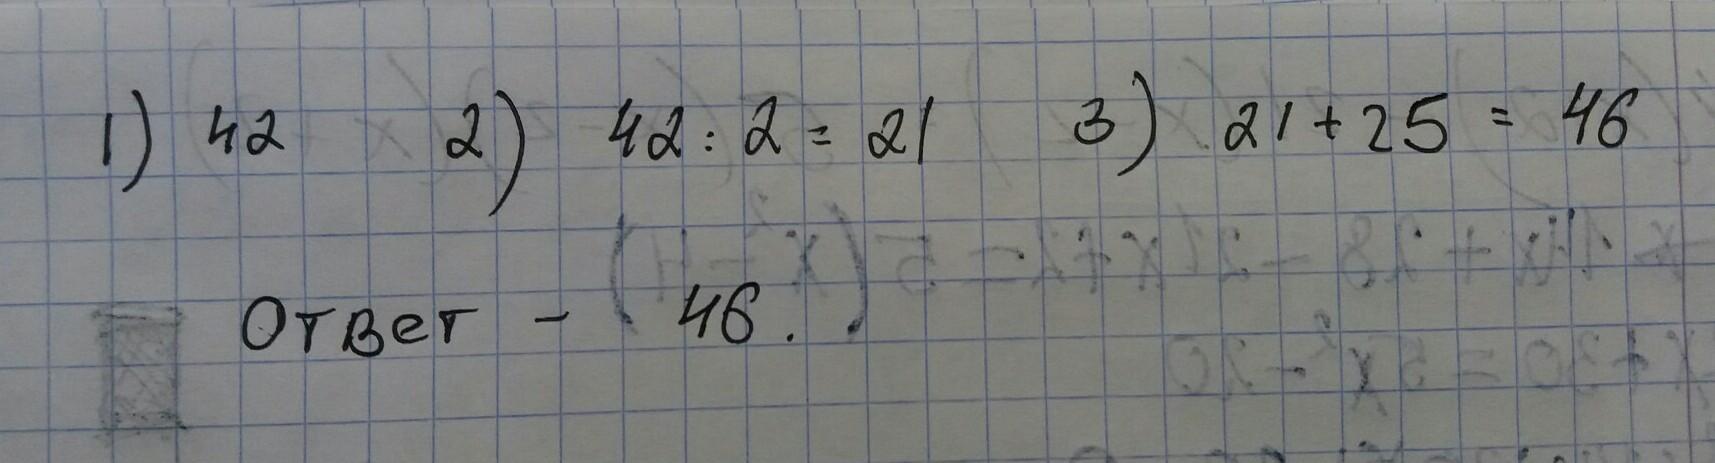 1) 42 2) 42 : 2 = 21 3) 21 + 25 = 46
Ответ - 46.